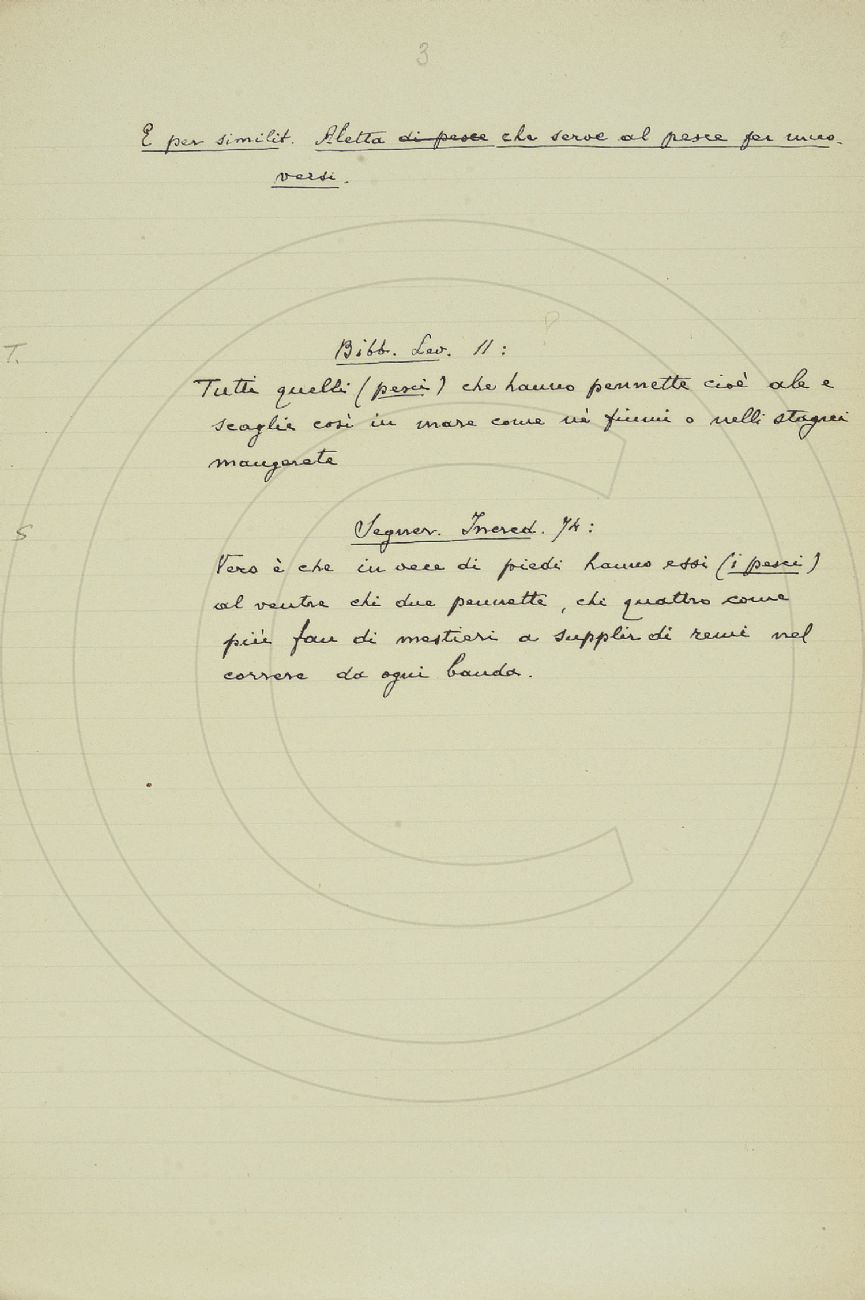 3
E per similit. Aletta di pesce che serve al pesce per muo-
versi.
Bibb. Lev. 11:
T.
Tutti quelli (pesci) che hanno pennette cioè ale e
scaglie così in mare come nè fiumi o nelli stagni
mangerete
Segner. Incred. 74:
S
Vero è che in vece di piedi hanno essi (i pesci)
al ventre chi due pennette, chi quattro come
più fan di mestieri a supplir di remi nel
correre da ogni banda.